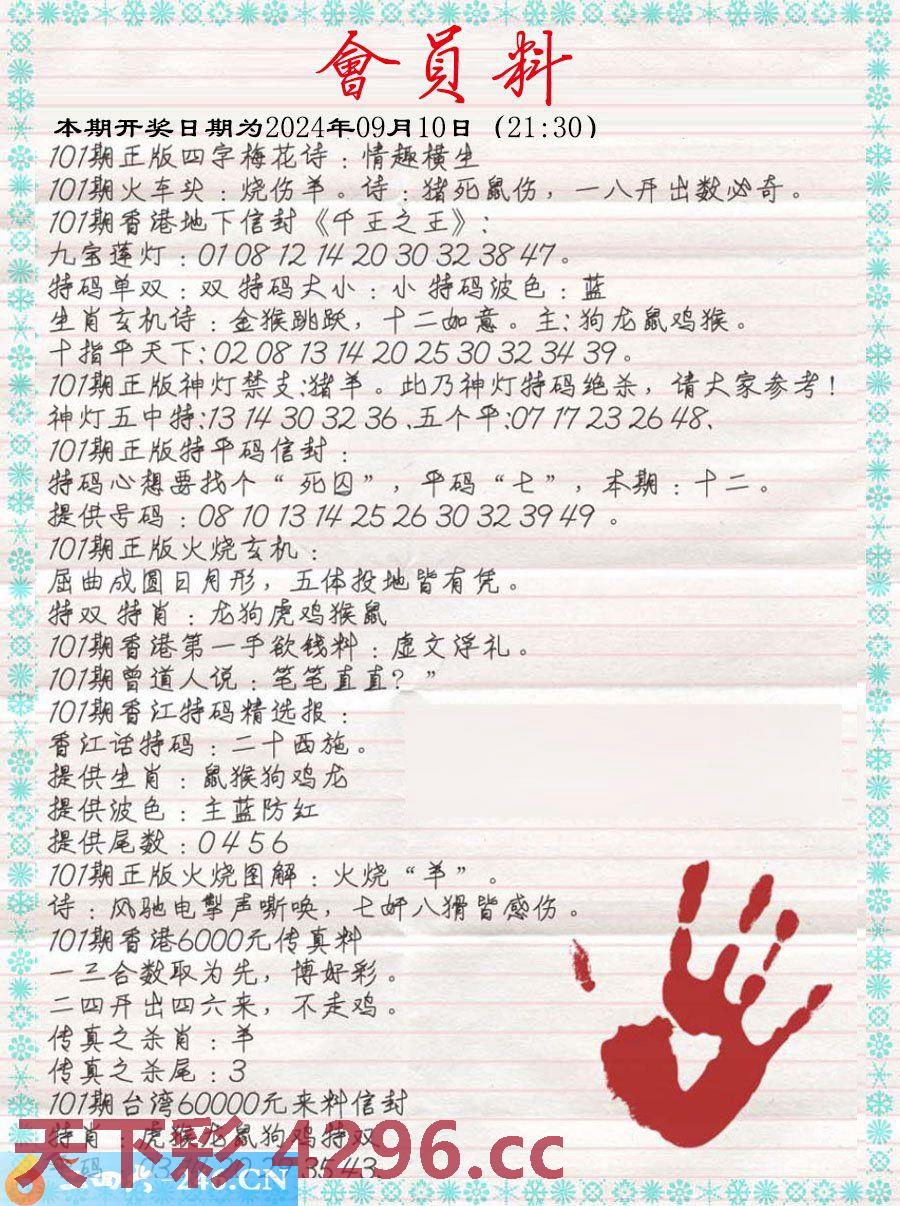 會員料
本期开奖日期为2024年09月10日（21:30）
101期正版四字梅花诗：情趣横生
101期火车头：烧伤羊。诗：猪死鼠伤，一八开出数必奇。
101期香港地下信封《千王之王》：
九宝莲灯：01 08 12 14 20 30 32 38 47。
特码单双：双 特码大小：小 特码波色：蓝
生肖玄机诗：金猴跳跃，十二如意。主:狗龙鼠鸡猴。
十指平天下:02 08 13 14 20 25 30 32 34 39。
101期正版神灯禁支:猪羊。此乃神灯特码绝杀，请大家参考！
神灯五中特:13 14 30 32 36、五个平:07 17 23 26 48、
101期正版特平码信封：
特码心想要找个“死囚”，平码“七”，本期：十二。
提供号码：08 10 13 14 25 26 30 32 39 49 。
101期正版火烧玄机：
屈曲成圆日月形，五体投地皆有凭。
特双 特肖：龙狗虎鸡猴鼠
101期香港第一手欲钱料：虚文浮礼。
101期曾道人说：笔笔直直？”
101期香江特码精选报：
香江话特码：二十西施。
提供生肖：鼠猴狗鸡龙
提供波色：主蓝防红
提供尾数：0 4 5 6
101期正版火烧图解：火烧“羊”。
诗：风驰电掣声嘶唤，七奸八猾皆感伤。
101期香港6000元传真料
一三合数取为先，博好彩。
二四开出四六来，不走鸡。
传真之杀肖：羊
传真之杀尾：3
101期台湾60000元来料信封
特肖：虎猴龙鼠狗鸡特双
天下彩 4296.cc
35 43
246.CN